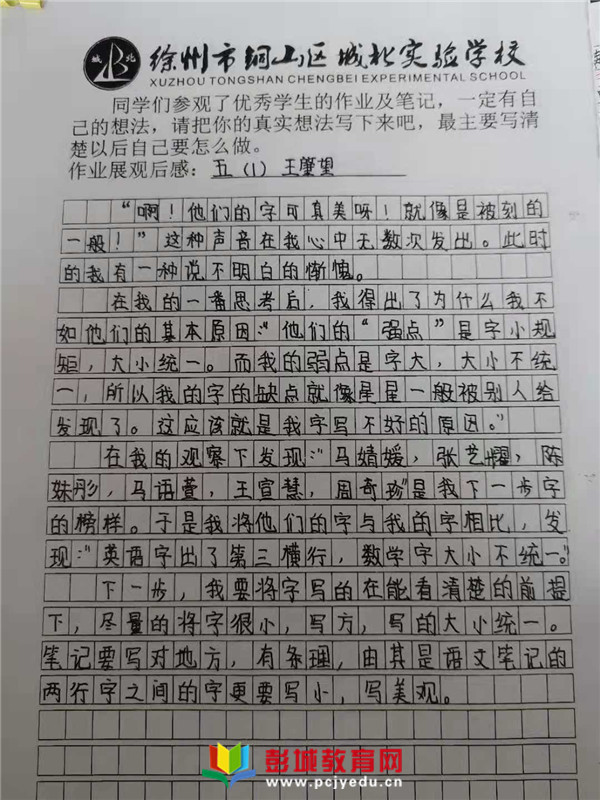 城北
徐州市铜山区城北实验学校
XUZHOU TONGSHAN CHENGBEI EXPERIMENTAL SCHOOL
同学们参观了优秀学生的作业及笔记，一定有自
己的想法，请把你的真实想法写下来吧，最主要写清
楚以后自己要怎么做。
作业展观后感：五（1）王肇望
“啊！他们的字可真美呀！就像是被刻的
一般！”这种声音在我心中无数次发出。此时
的我有一种说不明白的惭愧。
在我的一番思考后，我得出了为什么我不
如他们的基本原因：“他们的“强点”是字小规
矩，大小统一。而我的弱点是字大，大小不统
一，所以我的字的缺点就像星星一般被别人给
发现了。这应该就是我字写不好的原因。”
在我的观察下发现：“马婧媛，张艺耀，陈
姝彤，马语萱，王宣慧，周奇珍”是我下一步字
的榜样。于是我将他们的字与我的字相比，发
现：“英语字出了第三横行，数学字大小不统一。”
下一步，我要将字写的在能看清楚的前提
下，尽量的将字很小，写方，写的大小统一。
笔记要写对地方，有条理，由其是语文笔记的
两行字之间的字更要写小，写美观。
彭城教育网
www.pcjyedu.cn